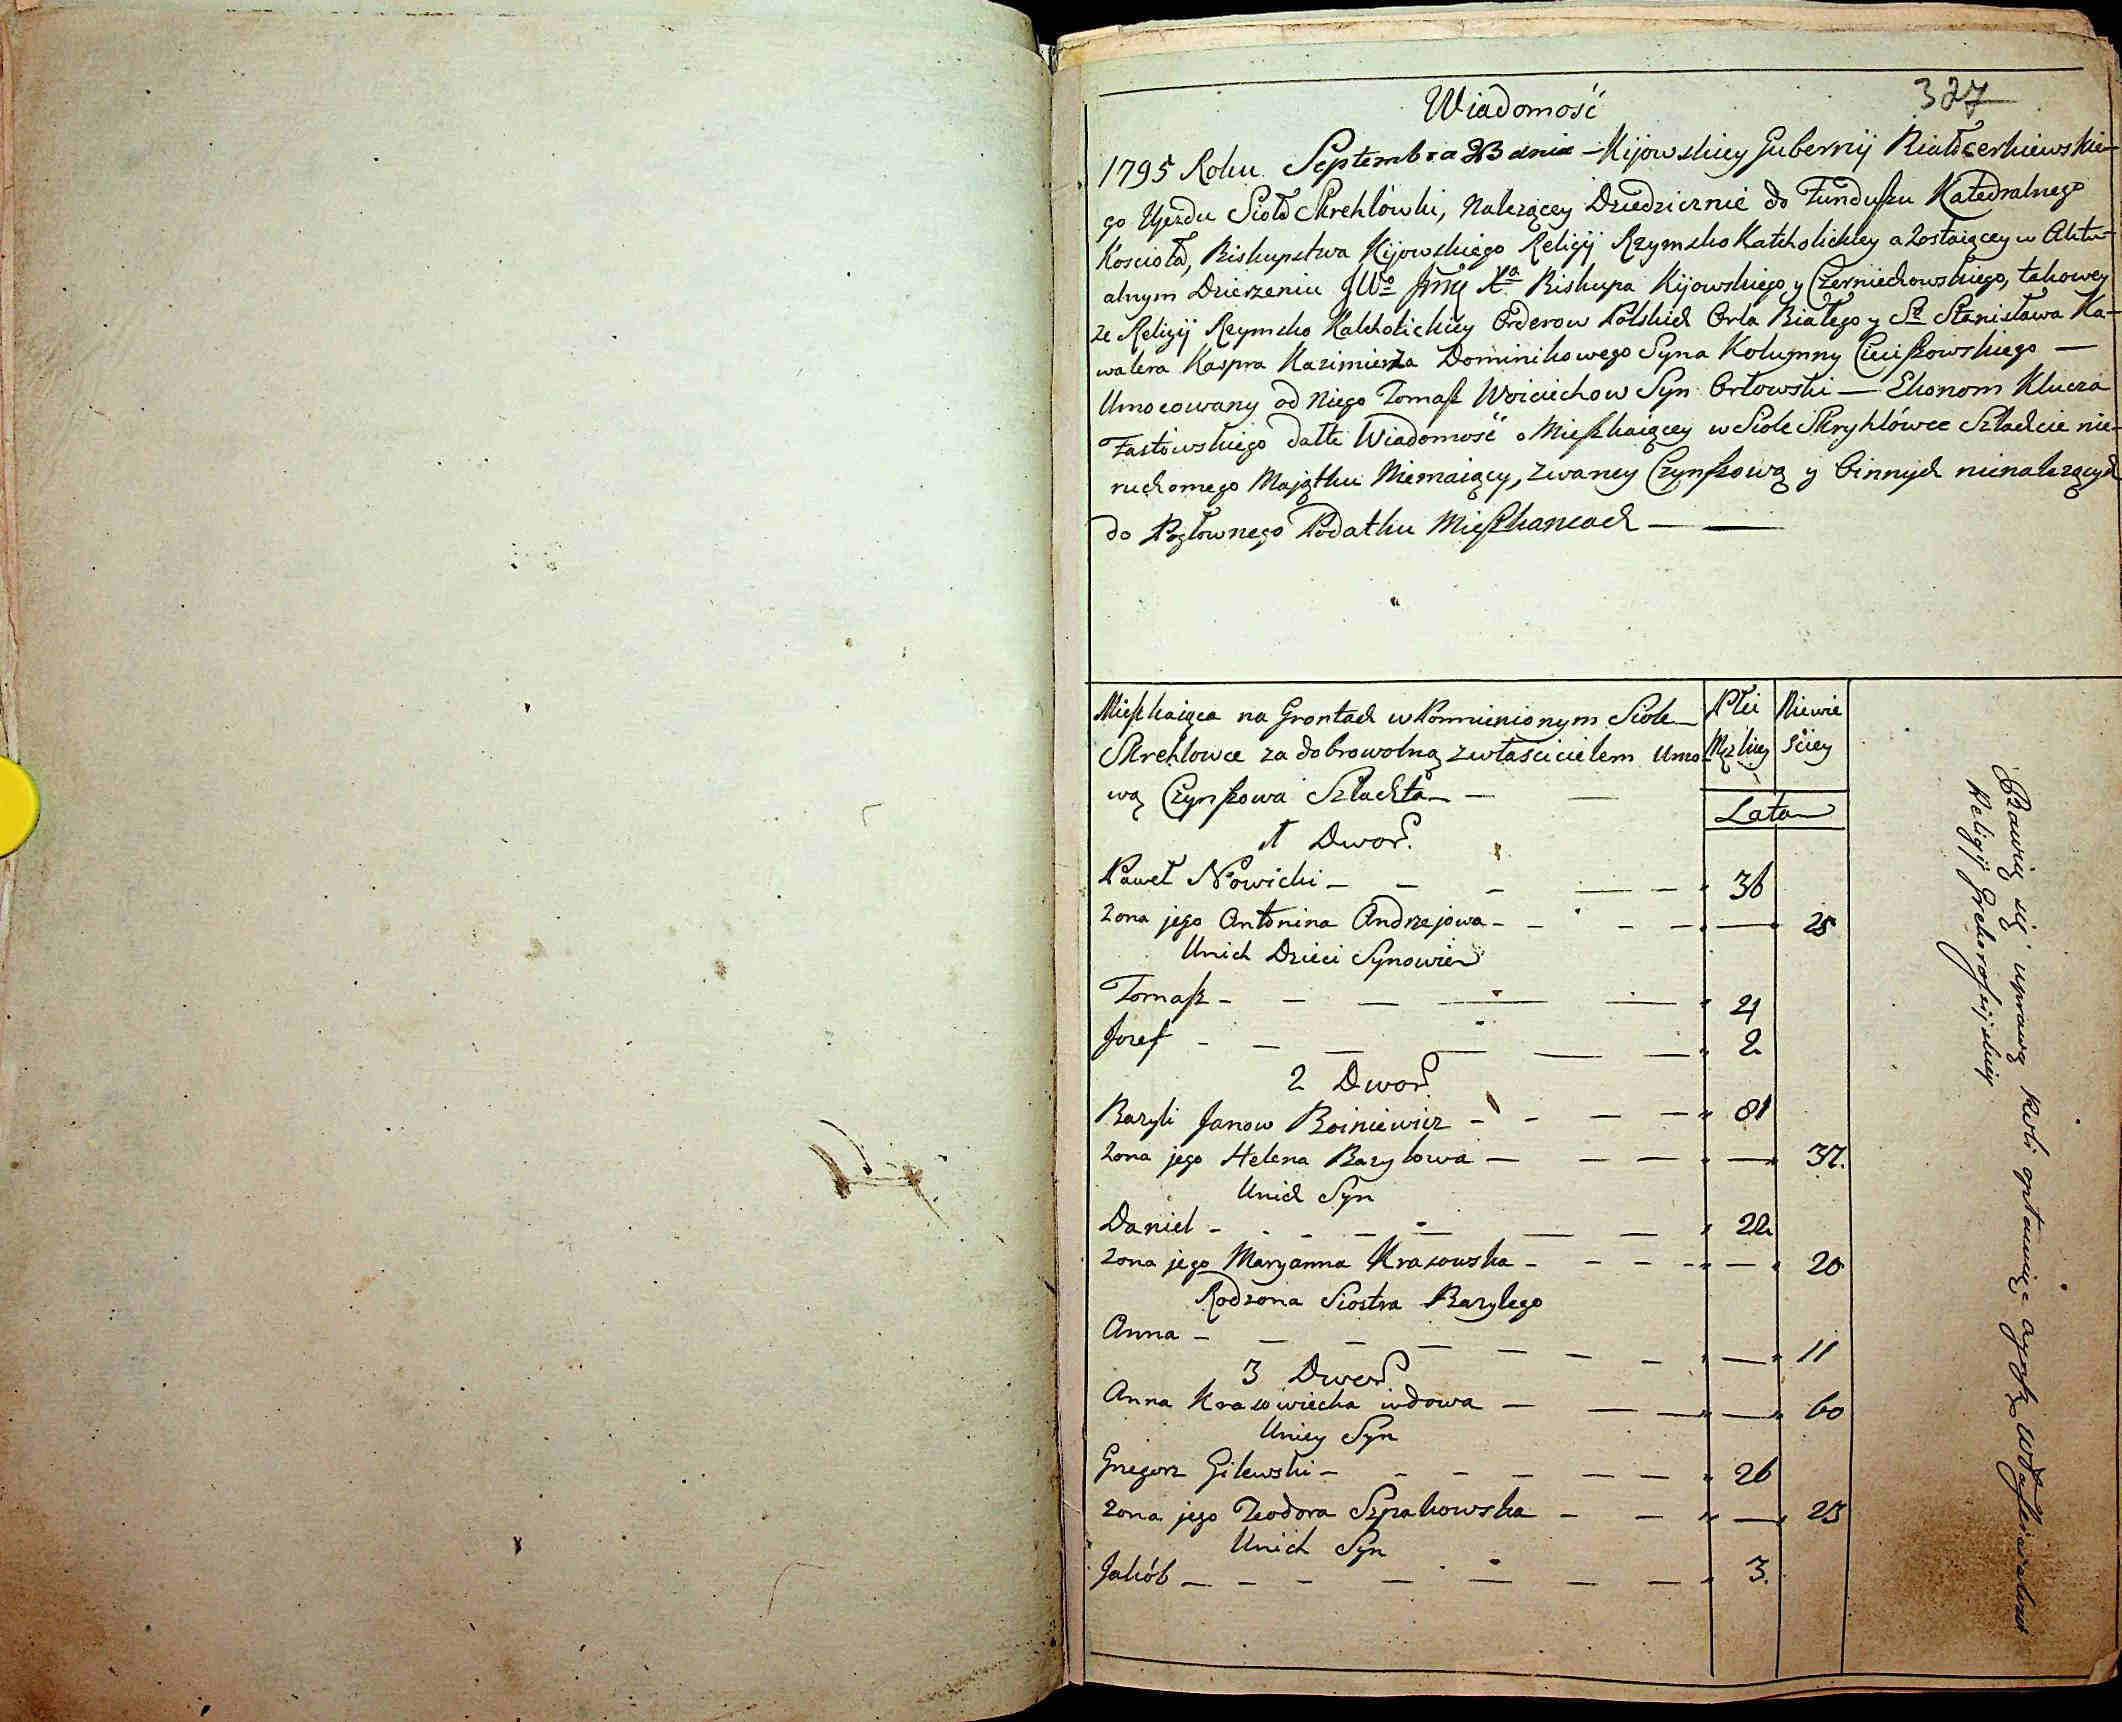 327
Wiadomość
1795 Roku Septembra 23 dnia — Kijowskiey Gubernij Białocerkiewskie-
go Ujezdu Sioła Skrehlówki, Należącey Dziedzicznie do Funduszu Katedralnego
Kościoła, Biskupstwa Kijowskiego Religij Rzymsko Katholickiey a Zostaiącey w Aktu-
alnym Dzierzeniu JWo Jmę Xa Biskupa Kijowskiego y Czerniechowskiego, takowey
że Religij Rzymsko Katholickiey Orderow Polskich Orła Białego y St Stanisława Ka-
walera Kaspra Kazimierza Dominikowego Syna Kolumny Cieciszowskiego —
Umocowany od Niego Tomasz Woiciechow Syn Orłowski — Ekonom Klucza
Fastowskiego dałti Wiadomość o Mieszkaiącey w Siole Skryhlówce Szlachcie nie-
ruchomego Majątku Niemaiący, zwaney Czynszową y Oinnych nienależących
do Pogłownego Podatku Mieszkancach — —
Mieszkaiąca na Grontach w Pomienionym Siole
Skrehlowce za dobrowolną zwłaścicielem umo-
wą Czynszowa Szlachta — —
Płci Męzkiey
Niewieściey
Lata
1 Dwor.
Paweł Nowicki — 36
żona jego Antonina Andrzejowa — 25
Unich Dzieci Synowie
Tomasz — 4
Jozef — 2
2 Dwor
Bazyli Janow Boiniewicz — 81
żona jego Helena Bazylowa — 37.
Unich Syn
Daniel — 22
żona jego Maryanna Krasowska — 20
Rodzona Siostra Bazylego
Anna — 11
3 Dwor
Anna Krasowiecka wdowa — 60
Uniey Syn
Grzegorz Gilewski — 26
żona jego Teodora Szpakowska — 23
Unich Syn
Jakób — 3.
Bawią się uprawą Roli opłacuiąc czynsz
Religij Grekorossijskiey